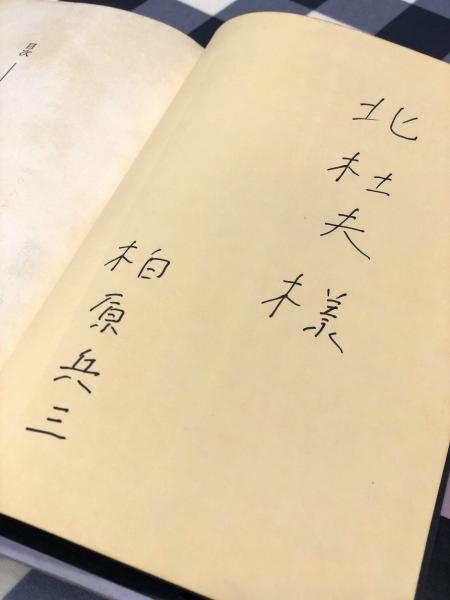 北杜夫様
柏原兵三
目次